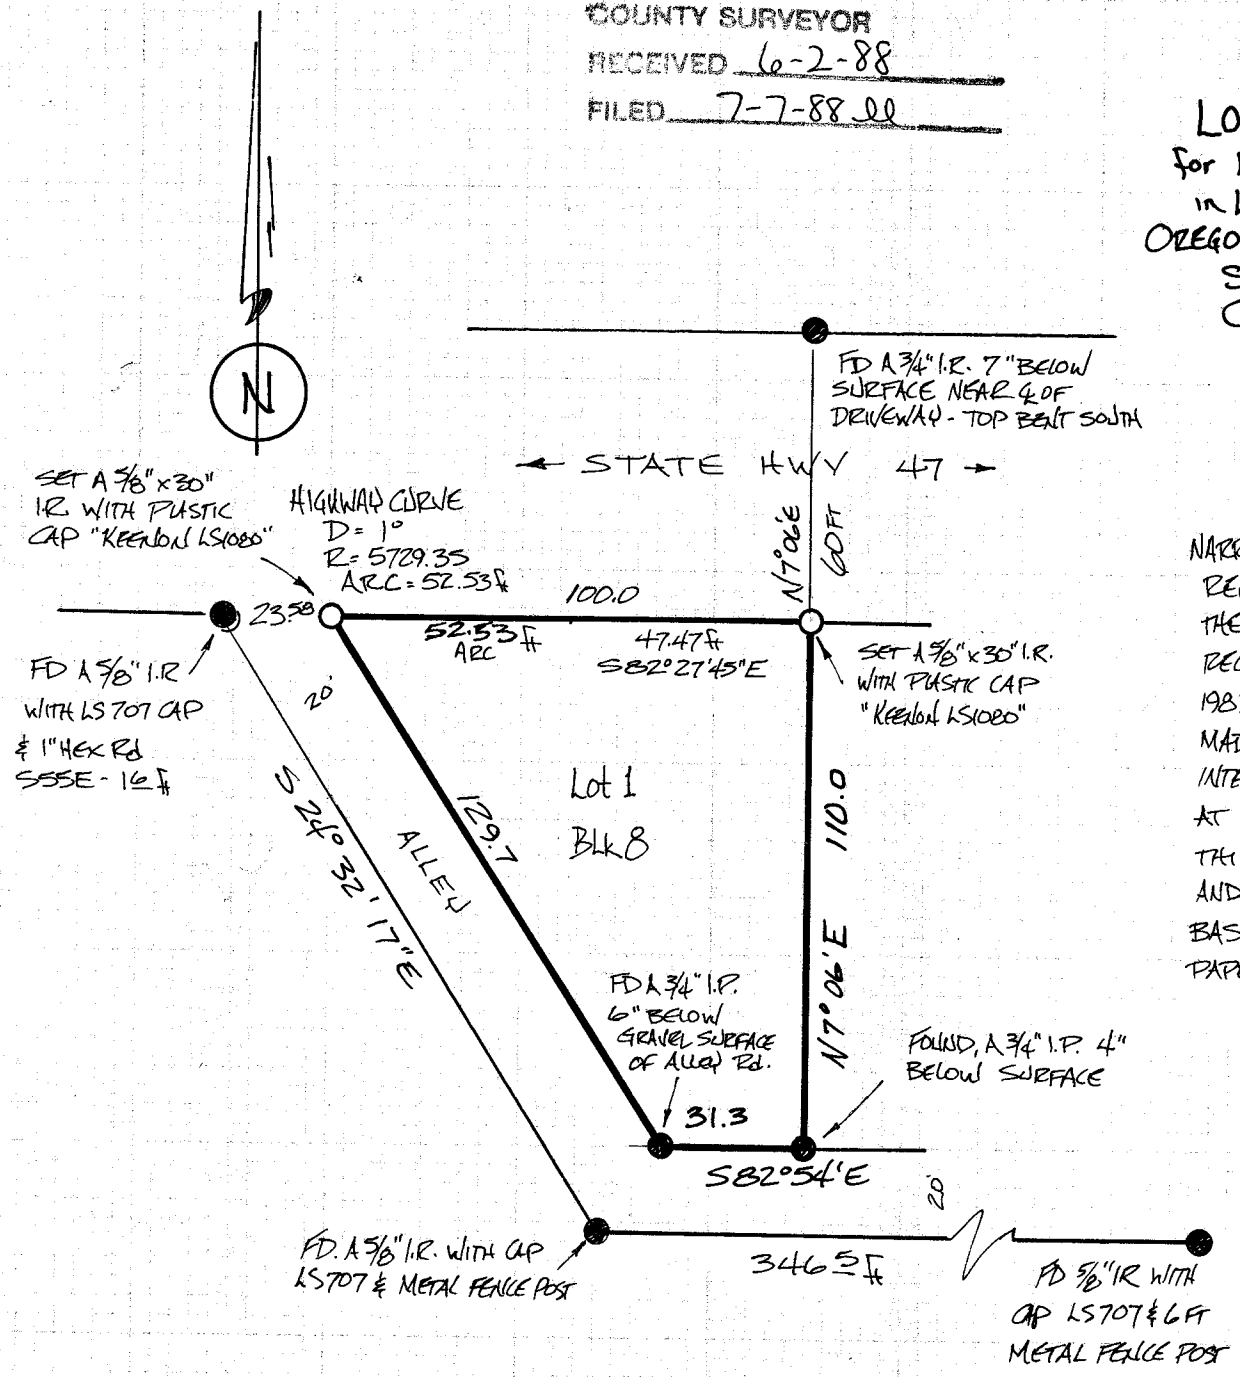 COUNTY SURVEYOR
RECEIVED 6-2-88
FILED 7-7-88
LO
for
in
OREGO
S
N
FD A 3/4" I.R. 7" BELOW
SURFACE NEAR ℄ OF
DRIVEWAY - TOP BENT SOUTH
← STATE HWY 47 →
SET A 5/8" x 30"
I.R. WITH PLASTIC
CAP "KEENON LS1080"
HIGHWAY CURVE
D = 1°
R = 5729.35
ARC = 52.53 ft
N7°06'E
60FT
23.58
100.0
52.53 ft
ARC
47.47 ft
S82°27'45"E
FD A 5/8" I.R
WITH LS 707 CAP
& 1" HEX Rd
S55E - 16 ft
20'
SET A 5/8" x 30" I.R.
WITH PLASTIC CAP
"KEENON LS1080"
NARR
RE
THE
REC
198
MAD
INTE
AT
TH
AND
BAS
PAP
S 24° 32' 17" E
ALLEY
129.7
Lot 1
BLK 8
110.0
N7°06'E
FD A 3/4" I.P.
6" BELOW
GRAVEL SURFACE
OF ALLEY Rd.
FOUND, A 3/4" I.P. 4"
BELOW SURFACE
31.3
S82°54'E
20'
FD. A 5/8" I.R. WITH CAP
LS707 & METAL FENCE POST
346.5 ft
FD 5/8" IR WITH
CAP LS707 & 6 FT
METAL FENCE POST